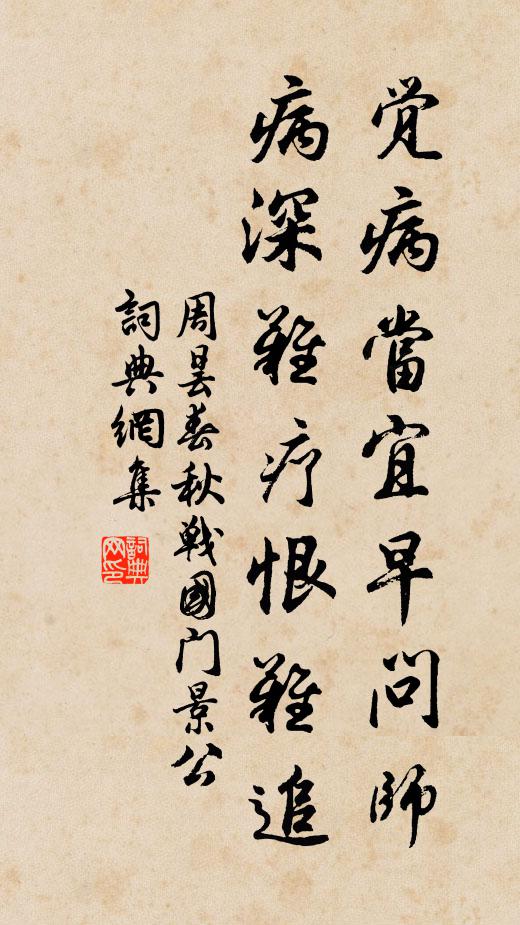 觉病當宜早問師
病深難疗恨難追
周昙春秋戦國门景公
詞典網集
詞典网印